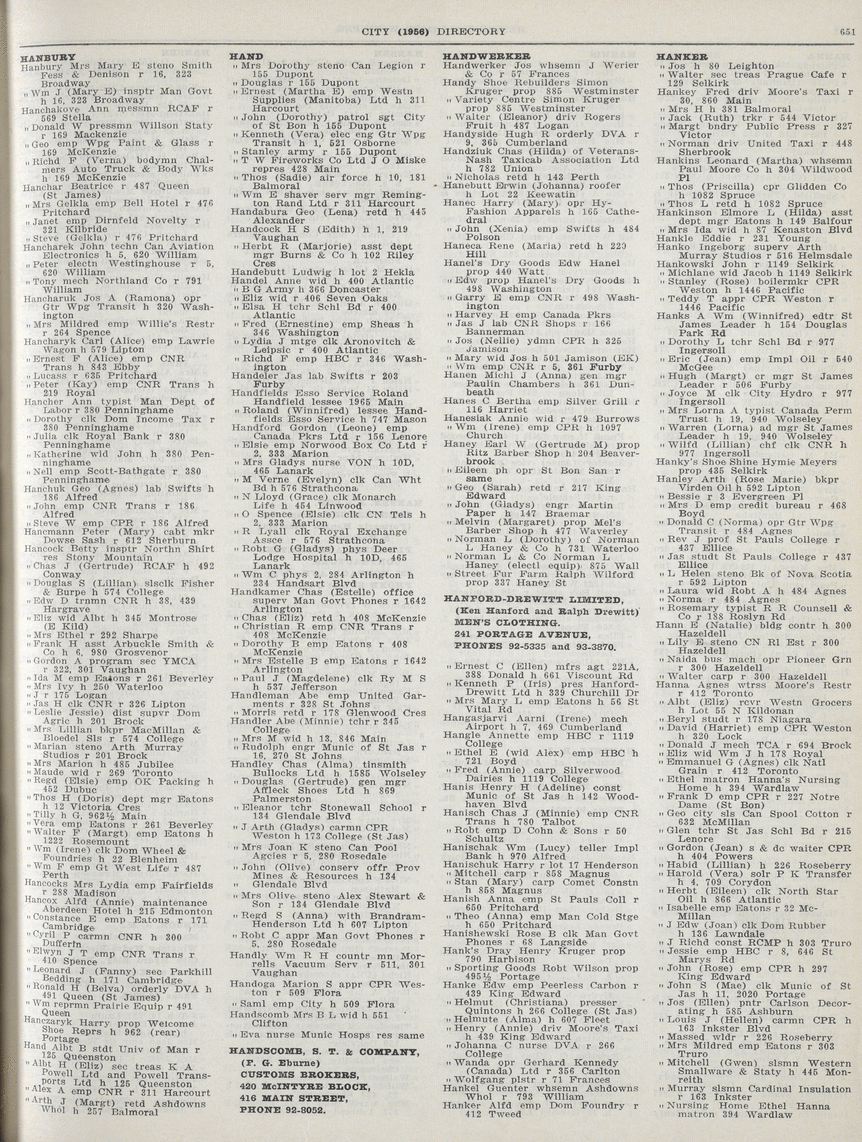 CITY (1956) DIRECTORY
651
HANBURY
Hanbury Mrs Mary E steno Smith
Fess & Denison r 16, 323
Broadway
" Wm J (Mary E) insptr Man Govt
h 16, 323 Broadway
Hanchakove Ann messmn RCAF r
569 Stella
" Donald W pressmn Willson Staty
r 169 Mackenzie
" Geo emp Wpg Paint & Glass r
169 McKenzie
" Richd F (Verna) bodymn Chal-
mers Auto Truck & Body Wks
h 169 McKenzie
Hanchar Beatrice r 487 Queen
(St James)
" Mrs Gelkla emp Bell Hotel r 476
Pritchard
" Janet emp Dirnfeld Novelty r
321 Kilbride
" Steve (Gelkla) r 476 Pritchard
Hancharek John techn Can Aviation
Electronics h 5, 620 William
" Peter electn Westinghouse r 5,
620 William
" Tony mech Northland Co r 791
William
Hancharuk Jos A (Ramona) opr
Gtr Wpg Transit h 320 Wash-
ington
" Mrs Mildred emp Willie's Restr
r 264 Spence
Hancharyk Carl (Alice) emp Lawrie
Wagon h 579 Lipton
" Ernest F (Alice) emp CNR
Trans h 843 Ebby
" Lucass r 635 Pritchard
" Peter (Kay) emp CNR Trans h
219 Royal
Hancher Ann typist Man Dept of
Labor r 380 Penninghame
" Dorothy clk Dom Income Tax r
380 Penninghame
" Julia clk Royal Bank r 380
Penninghame
" Katherine wid John h 380 Pen-
ninghame
" Nell emp Scott-Bathgate r 380
Penninghame
Hanchuk Geo (Agnes) lab Swifts h
186 Alfred
" John emp CNR Trans r 186
Alfred
" Steve W emp CPR r 186 Alfred
Hancmann Peter (Mary) cabt mkr
Dowse Sash r 612 Sherburn
Hancock Betty insptr Northn Shirt
res Stony Mountain
" Chas J (Gertrude) RCAF h 492
Conway
" Douglas S (Lillian) slsclk Fisher
& Burpe h 574 College
" Edw D trnmn CNR h 38, 439
Hargrave
" Eliz wid Albt h 345 Montrose
(E Kild)
" Mrs Ethel r 292 Sharpe
" Frank H asst Arbuckle Smith &
Co h 6, 980 Grosvenor
" Gordon A program sec YMCA
r 322, 301 Vaughan
" Ida M emp Eatons r 261 Beverley
" Mrs Ivy h 250 Waterloo
" J r 175 Logan
" Jas H clk CNR r 326 Lipton
" Leslie Jessie) dist supvr Dom
Agric h 201 Brock
" Mrs Lillian bkpr MacMillan &
Bloedel Sls r 574 College
" Marian steno Arth Murray
Studios r 201 Brock
" Mrs Marion h 485 Jubilee
" Maude wid r 269 Toronto
" Regd (Elsie) emp OK Packing h
452 Dubuc
" Thos H (Doris) dept mgr Eatons
h 12 Victoria Cres
" Tilly h G, 962½ Main
" Vera emp Eatons r 261 Beverley
" Walter F (Margt) emp Eatons h
1222 Rosemount
" Wm (Irene) clk Dom Wheel &
Foundries h 22 Blenheim
" Wm F emp Gt West Life r 487
Perth
Hancocks Mrs Lydia emp Fairfields
r 288 Madison
Hancox Alfd (Annie) maintenance
Aberdeen Hotel h 215 Edmonton
" Constance E emp Eatons r 171
Cambridge
" Cyril P carmn CNR h 300
Dufferin
" Elwyn J T emp CNR Trans r
410 Spence
" Leonard J (Fanny) sec Parkhill
Bedding h 171 Cambridge
" Ronald H (Belva) orderly DVA h
491 Queen (St James)
" Wm reprmn Prairie Equip r 491
Queen
Hanczaryk Harry prop Welcome
Shoe Reprs h 962 (rear)
Portage
Hand Albt B stdt Univ of Man r
125 Queenston
" Albt H (Eliz) sec treas K A
Powell Ltd and Powell Trans-
ports Ltd h 125 Queenston
" Alex A emp CNR r 311 Harcourt
" Arth J (Margt) retd Ashdowns
Whol h 257 Balmoral
HAND
" Mrs Dorothy steno Can Legion r
155 Dupont
" Douglas r 155 Dupont
" Ernest (Martha E) emp Westn
Supplies (Manitoba) Ltd h 311
Harcourt
" John (Dorothy) patrol sgt City
of St Bon h 155 Dupont
" Kenneth (Vera) elec eng Gtr Wpg
Transit h 1, 521 Osborne
" Stanley army r 155 Dupont
" T W Fireworks Co Ltd J O Miske
repres 428 Main
" Thos (Sadie) air force h 10, 181
Balmoral
" Wm E shaver serv mgr Reming-
ton Rand Ltd r 311 Harcourt
Handabura Geo (Lena) retd h 445
Alexander
Handcock H S (Edith) h 1, 219
Vaughan
" Herbt R (Marjorie) asst dept
mgr Burns & Co h 102 Riley
Cres
Handebutt Ludwig h lot 2 Hekla
Handel Anne wid h 400 Atlantic
" B G Army h 366 Doncaster
" Eliz wid r 406 Seven Oaks
" Elsa H tchr Schl Bd r 400
Atlantic
" Fred (Ernestine) emp Sheas h
346 Washington
" Lydia J mtge clk Aronovitch &
Leipsic r 400 Atlantic
" Richd F emp HBC r 346 Wash-
ington
Handeler Jas lab Swifts r 203
Furby
Handfields Esso Service Roland
Handfield lessee 1965 Main
" Roland (Winnifred) lessee Hand-
fields Esso Service h 747 Mason
Handford Gordon (Leone) emp
Canada Pkrs Ltd r 156 Lenore
" Elsie emp Norwood Box Co Ltd r
2, 333 Marion
" Mrs Gladys nurse VON h 10D,
465 Lanark
" M Verne (Evelyn) clk Can Wht
Bd h 576 Strathcona
" N Lloyd (Grace) clk Monarch
Life h 454 Linwood
" O Spence (Elsie) clk CN Tels h
2, 333 Marion
" R Lyall clk Royal Exchange
Assce r 576 Strathcona
" Robt G (Gladys) phys Deer
Lodge Hospital h 10D, 465
Lanark
" Wm C phys 2, 284 Arlington h
234 Handsart Blvd
Handkamer Chas (Estelle) office
superv Man Govt Phones r 1642
Arlington
" Chas (Eliz) retd h 408 McKenzie
" Christian R emp CNR Trans r
408 McKenzie
" Dorothy B emp Eatons r 408
McKenzie
" Mrs Estelle B emp Eatons r 1642
Arlington
" Paul J (Magdelene) clk Ry M S
h 537 Jefferson
Handleman Abe emp United Gar-
ments r 328 St Johns
" Morris retd r 178 Glenwood Cres
Handler Abe (Minnie) tchr r 345
College
" Mrs M wid h 13, 846 Main
" Rudolph engr Munic of St Jas r
16, 270 St Johns
Handley Chas (Alma) tinsmith
Bullocks Ltd h 1585 Wolseley
" Douglas (Gertrude) gen mgr
Affleck Shoes Ltd h 869
Palmerston
" Eleanor tchr Stonewall School r
134 Glendale Blvd
" J Arth (Gladys) carmn CPR
Weston h 173 College (St Jas)
" Mrs Joan K steno Can Pool
Agcies r 5, 280 Rosedale
" John (Olive) conserv offr Prov
Mines & Resources h 134
" Glendale Blvd
" Mrs Olive steno Alex Stewart &
Son r 134 Glendale Blvd
" Regd S (Anna) with Brandram-
Henderson Ltd h 607 Lipton
" Robt C appr Man Govt Phones r
5, 280 Rosedale
Handly Wm R H countr mn Mor-
rells Vacuum Serv r 511, 301
Vaughan
Handoga Marion S appr CPR Wes-
ton r 509 Flora
" Saml emp City h 509 Flora
Handscomb Mrs B L wid h 551
Clifton
" Eva nurse Munic Hosps res same
HANDSCOMB, S. T. & COMPANY,
(F. G. Eburne)
CUSTOMS BROKERS,
420 McINTYRE BLOCK,
416 MAIN STREET,
PHONE 92-8052.
HANDWERKER
Handwerker Jos whsemn J Werier
& Co r 57 Frances
Handy Shoe Rebuilders Simon
Kruger prop 885 Westminster
" Variety Centre Simon Kruger
prop 885 Westminster
" Walter (Eleanor) driv Rogers
Fruit h 487 Logan
Handyside Hugh R orderly DVA r
9, 365 Cumberland
Handziuk Chas (Hilda) of Veterans-
Nash Taxicab Association Ltd
h 782 Union
" Nicholas retd h 143 Perth
Hanebutt Erwin (Johanna) roofer
h Lot 22 Keewatin
Hanec Harry (Mary) opr Hy-
Fashion Apparels h 165 Cathe-
dral
" John (Xenia) emp Swifts h 484
Polson
Haneca Rene (Maria) retd h 220
Hill
Hanel's Dry Goods Edw Hanel
prop 440 Watt
" Edw prop Hanel's Dry Goods h
498 Washington
" Garry E emp CNR r 498 Wash-
ington
" Harvey H emp Canada Pkrs
" Jas J lab CNR Shops r 166
Bannerman
" Jos (Nellie) ydmn CPR h 325
Jamison
" Mary wid Jos h 501 Jamison (EK)
" Wm emp CNR r 5, 361 Furby
Hanen Michl J (Anna) gen mgr
Paulin Chambers h 361 Dun-
beath
Hanes C Bertha emp Silver Grill r
116 Harriet
Hanesiak Annie wid r 479 Burrows
" Wm (Irene) emp CPR h 1097
Church
Haney Earl W (Gertrude M) prop
Ritz Barber Shop h 204 Beaver-
brook
" Eileen ph opr St Bon San r
same
" Geo (Sarah) retd r 217 King
Edward
" John (Gladys) engr Martin
Paper h 147 Braemar
" Melvin (Margaret) prop Mel's
Barber Shop h 477 Waverley
" Norman L (Dorothy) of Norman
L Haney & Co h 731 Waterloo
" Norman L & Co Norman L
Haney (electl equip) 875 Wall
" Street Fur Farm Ralph Wilford
prop 337 Haney St
HANFORD-DREWITT LIMITED,
(Ken Hanford and Ralph Drewitt)
MEN'S CLOTHING.
241 PORTAGE AVENUE,
PHONES 92-5335 and 93-3870.
" Ernest C (Ellen) mfrs agt 221A,
388 Donald h 661 Viscount Rd
" Kenneth P (Iris) pres Hanford-
Drewitt Ltd h 339 Churchill Dr
" Mrs Mary L emp Eatons h 56 St
Vital Rd
Hangasjarvi Aarni (Irene) mech
Airport h 7, 469 Cumberland
Hangle Annette emp HBC r 1119
College
" Ethel E (wid Alex) emp HBC h
721 Boyd
" Fred (Annie) carp Silverwood
Dairies h 1119 College
Hanis Henry H (Adeline) const
Munic of St Jas h 142 Wood-
haven Blvd
Hanisch Chas J (Minnie) emp CNR
Trans h 780 Talbot
" Robt emp D Cohn & Sons r 50
Schultz
Hanischak Wm (Lucy) teller Impl
Bank h 970 Alfred
Hanischuk Harry r lot 17 Henderson
" Mitchell carp r 858 Magnus
" Stan (Mary) carp Comet Constn
h 858 Magnus
Hanish Anna emp St Pauls Coll r
650 Pritchard
" Theo (Anna) emp Man Cold Stge
h 650 Pritchard
Hanishewski Rose B clk Man Govt
Phones r 68 Langside
Hank's Dray Henry Kruger prop
790 Harbison
" Sporting Goods Robt Wilson prop
495½ Portage
Hanke Edw emp Peerless Carbon r
439 King Edward
" Helmut (Christiana) presser
Quintons h 266 College (St Jas)
" Helmute (Alma) h 607 Fleet
" Henry (Annie) driv Moore's Taxi
h 439 King Edward
" Johanna C nurse DVA r 266
College
" Wanda opr Gerhard Kennedy
(Canada) Ltd r 356 Carlton
" Wolfgang plstr r 71 Frances
Hankel Guenter whsemn Ashdowns
Whol r 793 William
Hanker Alfd emp Dom Foundry r
412 Tweed
HANKER
" Jos h 80 Leighton
" Walter sec treas Prague Cafe r
129 Selkirk
Hankey Fred driv Moore's Taxi r
30, 860 Main
" Mrs H h 381 Balmoral
" Jack (Ruth) trkr r 544 Victor
" Margt bndry Public Press r 327
Victor
" Norman driv United Taxi r 448
Sherbrook
Hankins Leonard (Martha) whsemn
Paul Moore Co h 304 Wildwood
Pl
" Thos (Priscilla) cpr Glidden Co
h 1082 Spruce
" Thos L retd h 1082 Spruce
Hankinson Elmore L (Hilda) asst
dept mgr Eatons h 149 Balfour
" Mrs Ida wid h 87 Kenaston Blvd
Hankle Eddie r 231 Young
Hanko Ingeborg superv Arth
Murray Studios r 516 Helmsdale
Hankowski John r 1149 Selkirk
" Michlane wid Jacob h 1149 Selkirk
" Stanley (Rose) boilermkr CPR
Weston h 1446 Pacific
" Teddy T appr CPR Weston r
1446 Pacific
Hanks A Wm (Winnifred) edtr St
James Leader h 154 Douglas
Park Rd
" Dorothy L tchr Schl Bd r 977
Ingersoll
" Eric (Jean) emp Impl Oil r 540
McGee
" Hugh (Margt) cr mgr St James
Leader r 506 Furby
" Joyce M clk City Hydro r 977
Ingersoll
" Mrs Lorna A typist Canada Perm
Trust h 19, 940 Wolseley
" Warren (Lorna) ad mgr St James
Leader h 19, 940 Wolseley
" Wilfd (Lillian) chf clk CNR h
977 Ingersoll
Hanky's Shoe Shine Hymie Meyers
prop 435 Selkirk
Hanley Arth (Rose Marie) bkpr
Virden Oil h 592 Lipton
" Bessie r 3 Evergreen Pl
" Mrs D emp credit bureau r 468
Boyd
" Donald C (Norma) opr Gtr Wpg
Transit r 484 Agnes
" Rev J prof St Pauls College r
437 Ellice
" Jas studt St Pauls College r 437
Ellice
" L Helen steno Bk of Nova Scotia
r 592 Lipton
" Laura wid Robt A h 484 Agnes
" Norma r 484 Agnes
" Rosemary typist R R Counsell &
Co r 188 Roslyn Rd
Hann E (Natalie) bldg contr h 300
Hazeldell
" Lily E steno CN Rl Est r 300
Hazeldell
" Naida bus mach opr Pioneer Grn
r 300 Hazeldell
" Walter carp r 300 Hazeldell
Hanna Agnes wtrss Moore's Restr
r 412 Toronto
" Albt (Eliz) rcvr Westn Grocers
h Lot 55 N Kildonan
" Beryl studt r 178 Niagara
" David (Harriet) emp CPR Weston
h 320 Lock
" Donald J mech TCA r 694 Brock
" Eliz wid Wm J h 178 Royal
" Emmanuel G (Agnes) clk Natl
Grain r 412 Toronto
" Ethel matron Hanna's Nursing
Home h 394 Wardlaw
" Frank D emp CPR r 227 Notre
Dame (St Bon)
" Geo city sls Can Spool Cotton r
632 McMillan
" Glen tchr St Jas Schl Bd r 215
Lenore
" Gordon (Jean) s & dc waiter CPR
h 404 Powers
" Habid (Lillian) h 226 Roseberry
" Harold (Vera) solr P K Transfer
h 4, 709 Corydon
" Herbt (Eileen) clk North Star
Oil h 866 Atlantic
" Isabelle emp Eatons r 32 Mc-
Millan
" J Edw (Joan) clk Dom Rubber
h 136 Lawndale
" J Richd const RCMP h 303 Truro
" Jessie emp HBC r 8, 646 St
Marys Rd
" John (Rose) emp CPR h 297
King Edward
" John S (Mae) clk Munic of St
Jas h 11, 2020 Portage
" Jos (Ellen) pntr Carlson Decor-
ating h 585 Ashburn
" Louis J (Hellen) carmn CPR h
163 Inkster Blvd
" Massed wldr r 226 Roseberry
" Mrs Mildred emp Eatons r 303
Truro
" Mitchell (Gwen) slsmn Western
Smallware & Staty h 445 Mon-
reith
" Murray slsmn Cardinal Insulation
r 163 Inkster
" Nursing Home Ethel Hanna
matron 394 Wardlaw